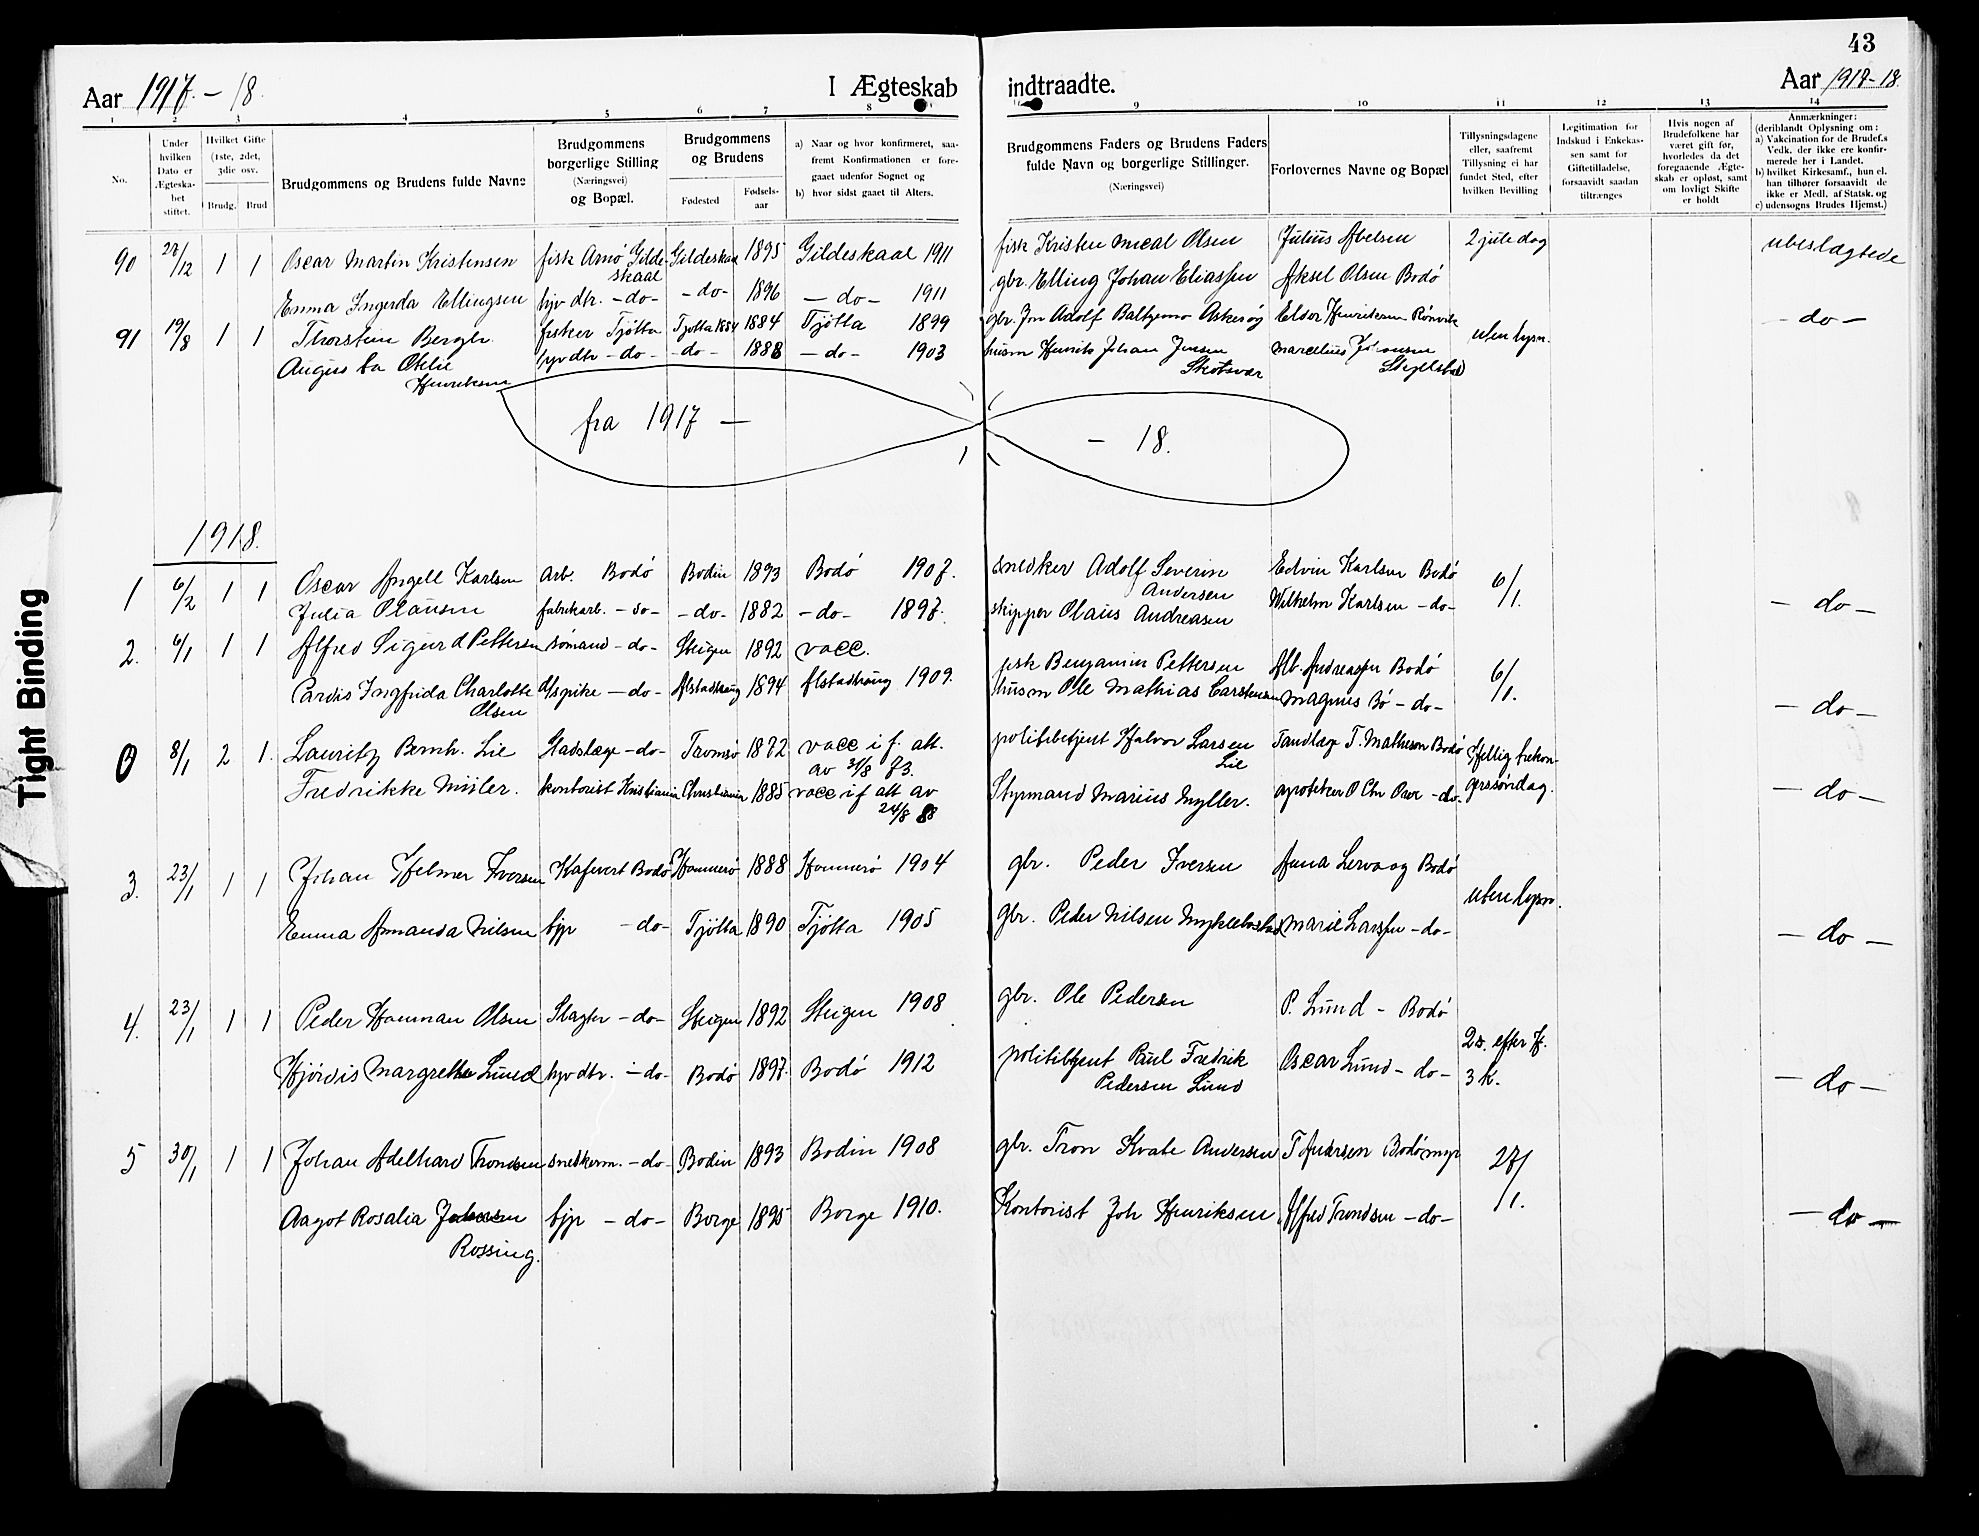 43
Aar 1917 - 18.
I Ægteskab indtraadte.
Aar 1917-18.
1 2 3 4 5 6 7 8 9 10 11 12 13 14
No.
Under hvilken Dato er Ægteska- bet stiftet.
Hvilket Gifte (1ste, 2det, 3die osv.
Brudg. Brud
Brudgommens og Brudens fulde Navne
Brudgommens borgerlige Stilling (Næringsvei) og Bopæl.
Brudgommens og Brudens
Fødested Fødsels- aar
a) Naar og hvor konfirmeret, saa- fremt Konfirmationen er fore- gaaet udenfor Sognet og
b) hvor sidst gaaet til Alters.
Brudgommens Faders og Brudens Faders fulde Navn og borgerlige Stillinger. (Næringsvei)
Forlovernes Navne og Bopæl
Tillysningsdagene eller, saafremt Tillysning ei har fundet Sted, efter hvilken Bevilling
Legitimation for Indskud i Enkekas- sen samt for Giftetilladelse, forsaavidt saadan tiltrænges
Hvis nogen af Brudefolkene har været gift før, hvorledes da det foregaaende Ægte- skab er opløst, samt om lovligt Skifte er holdt
Anmærkninger: (deriblandt Oplysning om: a) Vakcination for de Brudef.s Vedk. der ikke ere konfir- merede her i Landet. b) hvilket Kirkesamf., hun el. han tilhører forsaavidt de ikke er Medl. af Statsk. og c) udensogns Brudes Hjemst.)
90 27/12 1 1 Oscar Martin Kristensen fisk Arnø Gilde- skaal Gildeskaal 1895 Gildeskaal 1911 fisk Kristen Mical Olsen Julius Abelsen 2 juledag ubeslægtede
Emma Ingerda Ellingsen hjv dtr. - do - - do - 1896 - do - 1911 gbr. Elling Johan Eliassen Aksel Olsen Bodø
91 19/8 1 1 Thorstein Bergh. fisker Tjøtta Tjøtta 1884 Tjøtta 1899 gbr. Adolf Askerøy Henriksen Rønvik uten lysn. - do -
Otelie Henriksen hjv dtr - do - - do - 1888 - do - 1903 husm Henrik Johan Jensen Skotsvær Marcelius Johansen
fra 1917 - - 18.
1918.
1 6/2 1 1 Oscar Angell Karlsen Arb. Bodø Bodin 1893 Bodø 1907. snedker Adolf Severin Andersen Edvin Karlsen Bodø 6/1. - do -
Julia Olausen fabrikarb. - do - - do - 1882 - do - 1897. skipper Olaus Andreasen Wilhelm Karlsen - do -
2. 6/1 1 1 Alfred Sigurd Pettersen sømand - do - Steigen 1892 vacc. fisk Benjamin Pettersen Alb. Andreassen Bodø 6/1.
Ingfrida Charlotte Olsen - do - Alstadhaug 1894 Alstadhaug 1909. husm Ole Mathias Carstensen Magnus Bø - do - - do -
0 8/1 2 1. Lauritz Bernh. Lie Stadslæge - do - Tromsø 1872 vacc i f. att. av 31/8 73. politibetjent Halvor Larsen Lie Tandlæge T. Mathesen Bodø Hellig trekon- gerssøndag.
Fredrikke Müler. kontorist Kristiania Christiania 1885 vacc i f att av 24/8 88 Styrmand Marius Myller. apoteker - do - - do -
3. 23/1 1 1 Johan Helmer Iversen Kafevert Bodø Hammerø 1888 Hammerø 1904 gbr. Peder Iversen Anna Lervaag Bodø uten lysn.
Emma Amanda Nilsen tjp - do - Tjøtta 1890 Tjøtta 1905 gbr. Peder Nilsen Myklebostad Marie Larssen - do - - do -
4. 23/1 1 1 Peder Hanman Olsen Slagter - do - Steigen 1892 Steigen 1908 gbr. Ole Pedersen P. Lund - Bodø 2 s. efter H. 3 K.
Hjördis Margrethe Lund hjv dtr. - do - Bodø 1897. Bodø 1912 politibtjent Paul Fredrik Pedersen Lund Oscar Lund - do - - do -
5 30/1 1 1 Johan Adelhard Trondsen snedkerm. - do - Bodin 1893 Bodin 1908 gbr. Tron Kvale Andersen T Andersen Bodømyr 27/1.
Aagot Rosalia Rossing. tjp - do - Borge 1895 Borge 1910. Kontorist Joh Henriksen Alfred Trondsen - do - - do -
Tight Binding